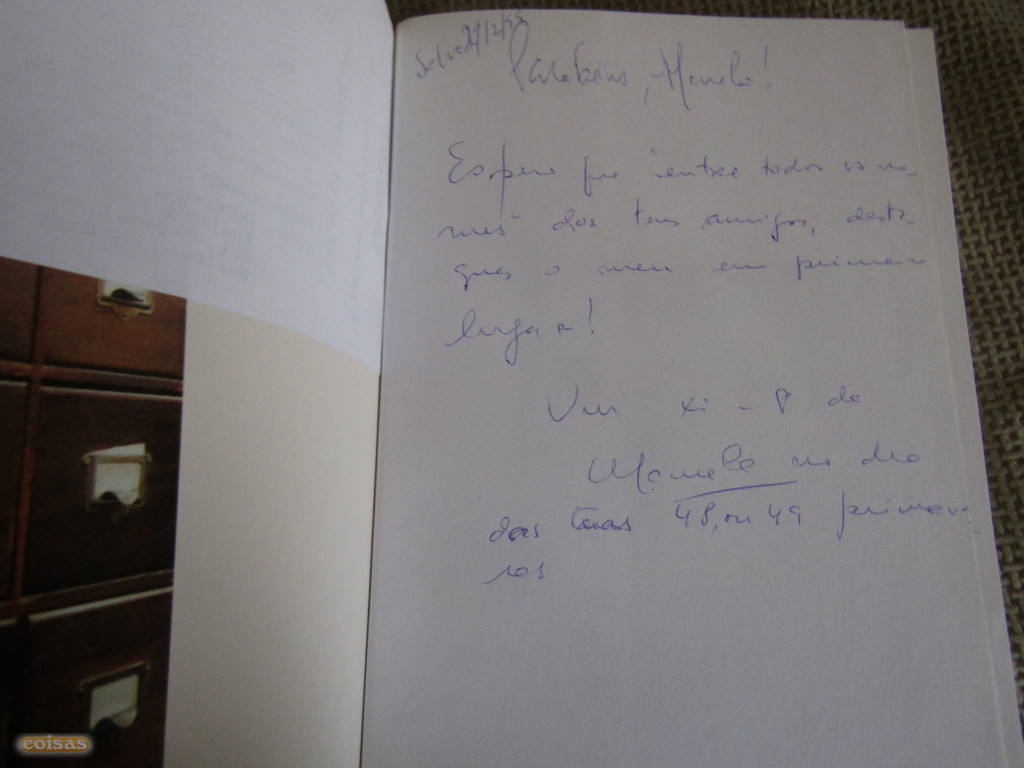 Parabéns, Manela!
Espero que "entre todos os no-
mes" dos teus amigos, desta-
ques o meu em primeiro
lugar!
Um xi - 8 da
Manela no dia
das tuas 48, ou 49 primave-
ras
coisas